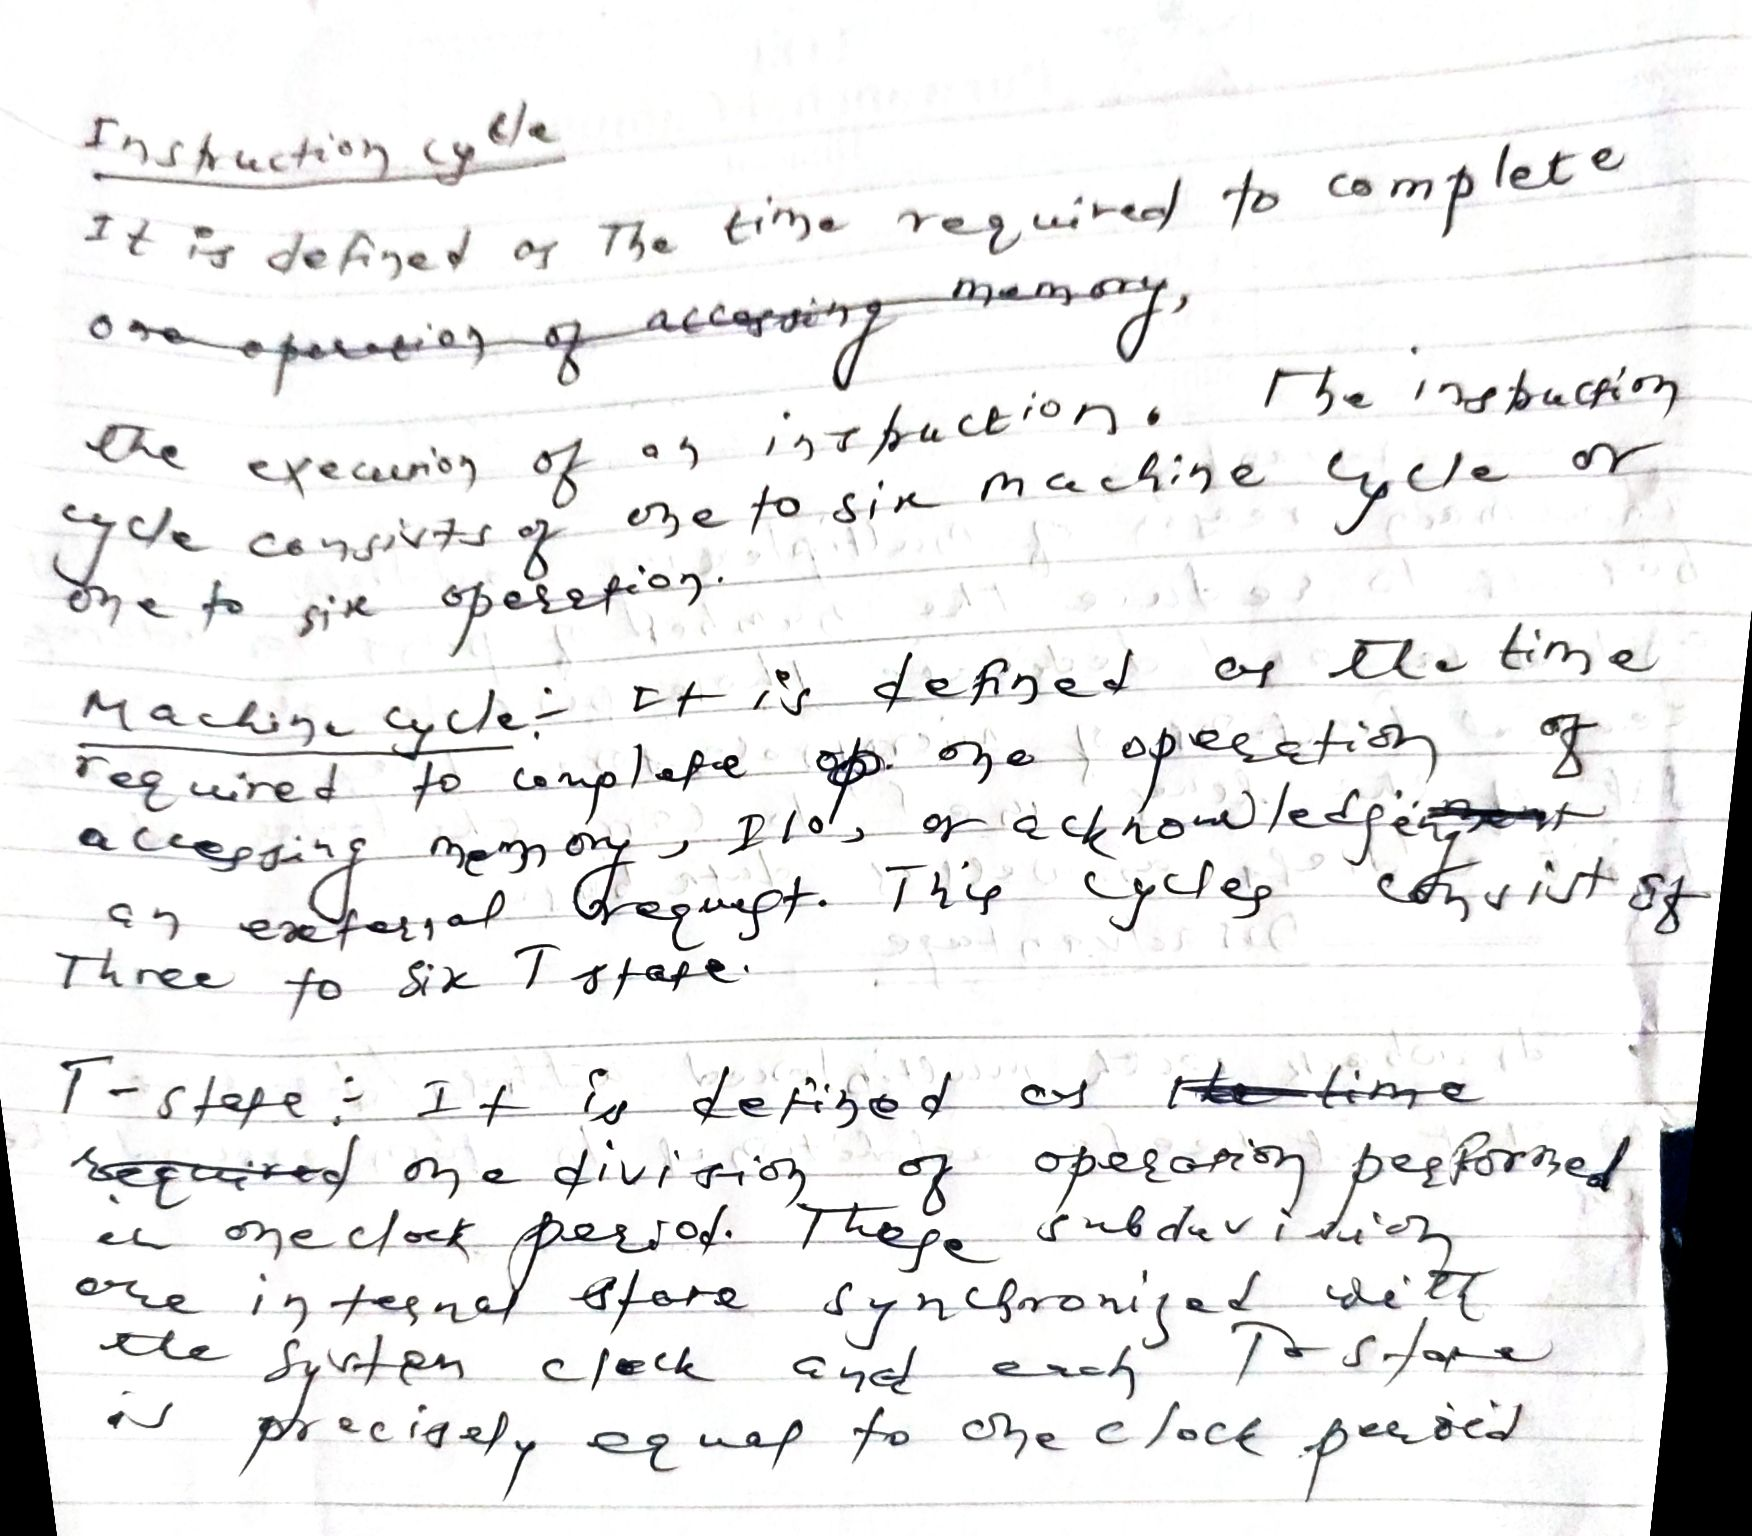 Instruction cycle
It is defined as The time required to complete
one operation of accessing memory,
the execution of an instruction. The instruction
cycle consists of one to six machine cycle or
one to six operation.
Machine cycle:- It is defined as the time
required to complete op. one operation of
accessing memory, I/O, or acknowledging
an external request. This cycles consist of
Three to six T state.
T-state:- It is defined as the time
required one division of operation performed
in one clock period. These subdivision
are internal state synchronized with
the system clock and each T-state
is precisely equal to one clock period